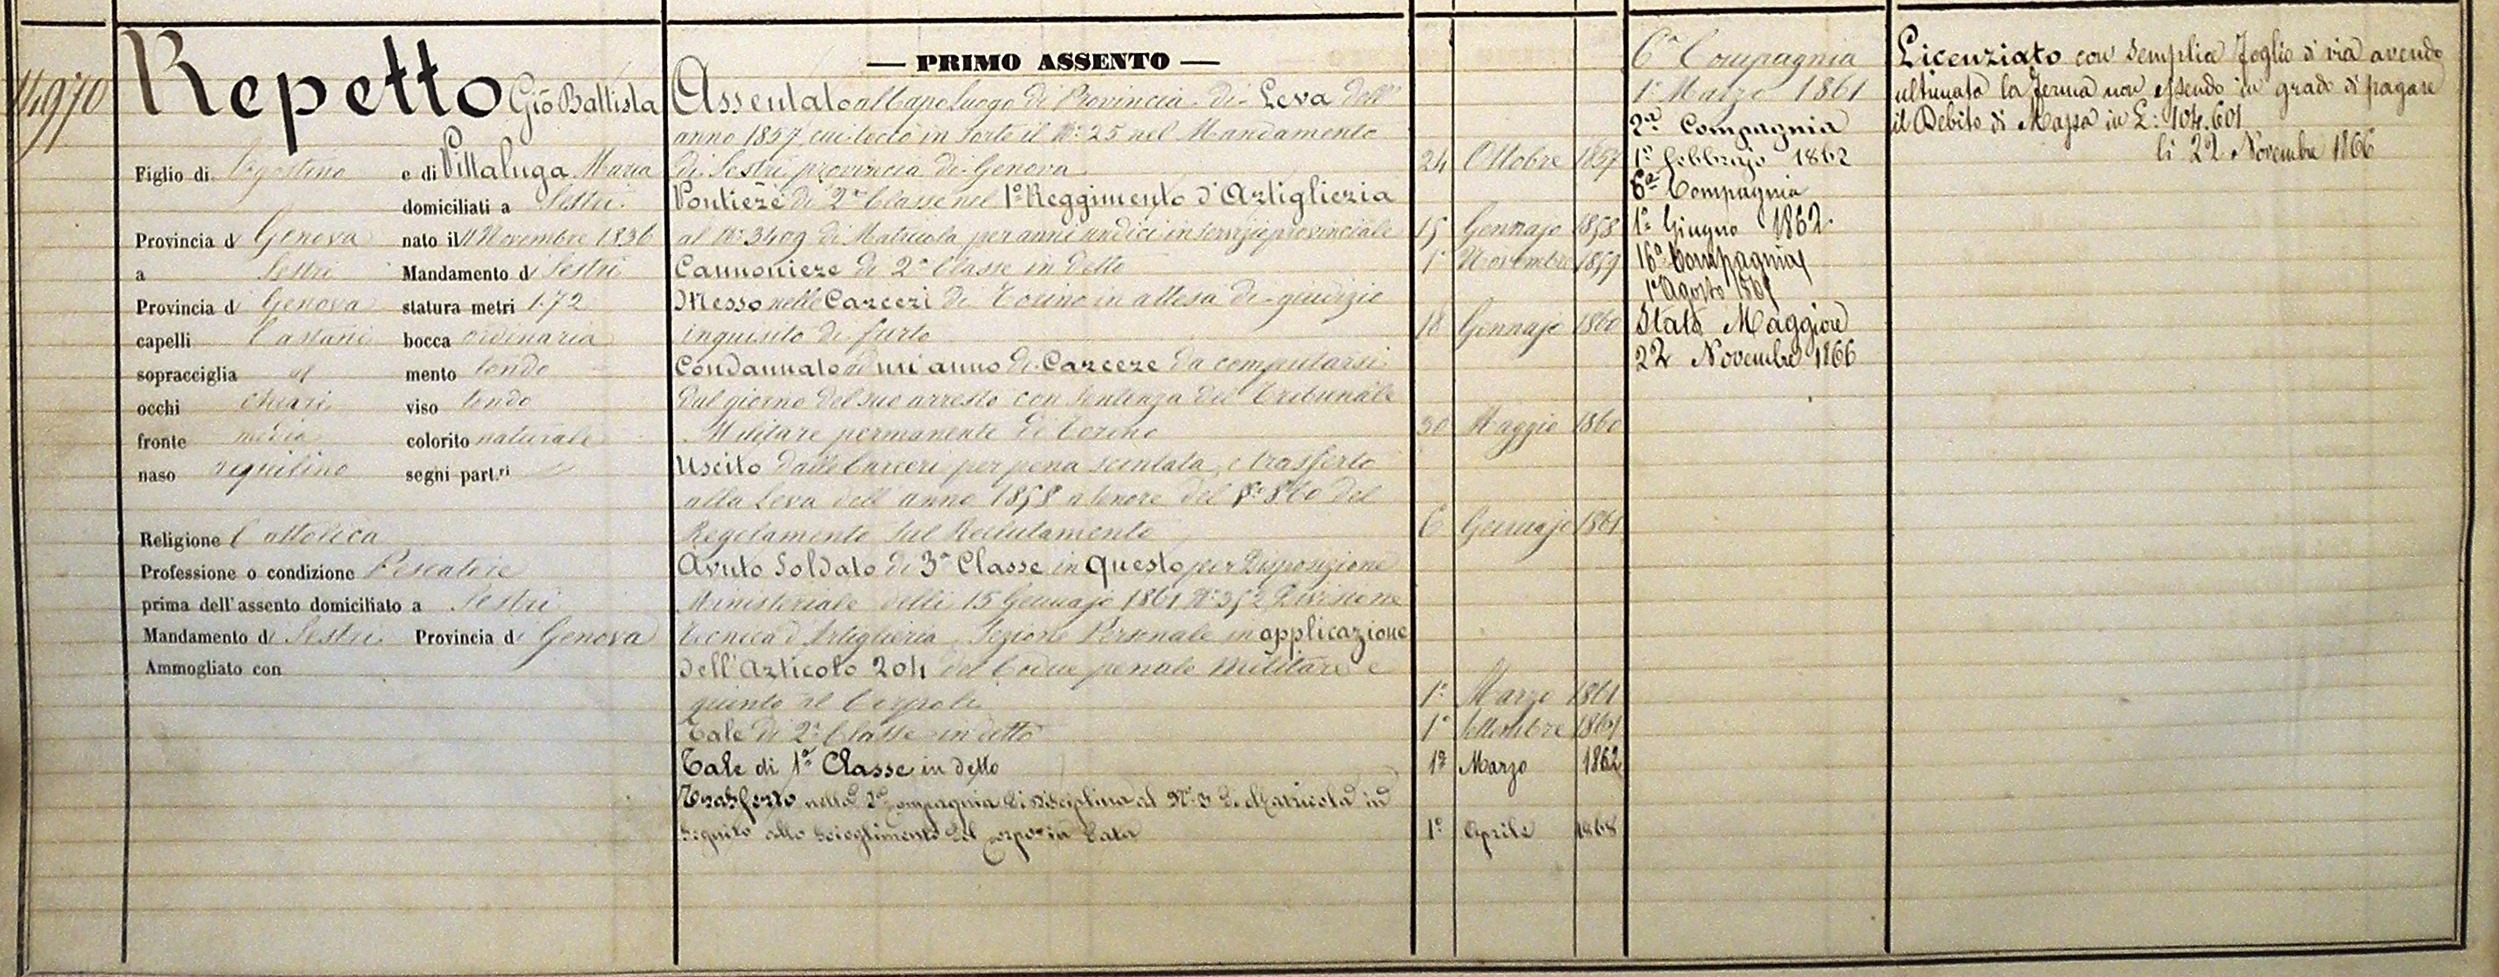 14970
Repetto Gio Battista
Figlio di Agostino e di Pittaluga Maria
domiciliati a Sestri
Provincia di Genova nato il 11 Novembre 1836
a Sestri Mandamento di Sestri
Provincia di Genova statura metri 1.72
capelli Castani bocca ordinaria
sopracciglia id mento tondo
occhi chiari viso tondo
fronte media colorito naturale
naso aquilino segni part.ri
Religione Cattolica
Professione o condizione Pescatore
prima dell'assento domiciliato a Sestri
Mandamento di Sestri Provincia di Genova
Ammogliato con
— PRIMO ASSENTO —
Assentato al Capoluogo di Provincia di Leva dell'
anno 1857 cui toccò in sorte il N.° 25 nel Mandamento
di Sestri provincia di Genova 24 Ottobre 1857
Pontiere di 2a Classe nel 1° Reggimento d'Artiglieria
al N.° 3409 di Matricola per anni undici in servizio provinciale 15 Gennajo 1858
Cannoniere di 2a Classe in detto 1° Novembre 1859
Messo nelle Carceri di Torino in attesa di giudizio
inquisito di furto 18 Gennajo 1860
Condannato ad un anno di Carcere da computarsi
dal giorno del suo arresto con sentenza del Tribunale
Militare permanente di Torino 30 Maggio 1860
Uscito dalle Carceri per pena scontata, e trasferto
alla Leva dell'anno 1858 a tenore del § 860 del
Regolamento sul Reclutamento 6 Gennajo 1861
Avuto Soldato di 3a Classe in questo per Disposizione
Ministeriale delli 15 Gennajo 1861 N.° 352 Divisione
Tecnica d'Artiglieria Sezione Personale in applicazione
dell'Articolo 204 del Codice penale militare e
giunto al Corpo li 1° Marzo 1861
Tale di 2a Classe in detto 1° Settembre 1861
Tale di 1a Classe in detto 1° Marzo 1862
Trasferto nella 2a Compagnia di Disciplina al N.° 3 di Matricola in
seguito allo scioglimento del Corpo in data 1° Aprile 1868
6a Compagnia
1° Marzo 1861
2a Compagnia
1° Febbrajo 1862
6a Compagnia
1° Giugno 1862
16a Compagnia
1° Agosto
Stato Maggiore
22 Novembre 1866
Licenziato con semplice foglio di via avendo
ultimata la ferma non essendo in grado di pagare
il Debito di Massa in L: 104.601
li 22 Novembre 1866